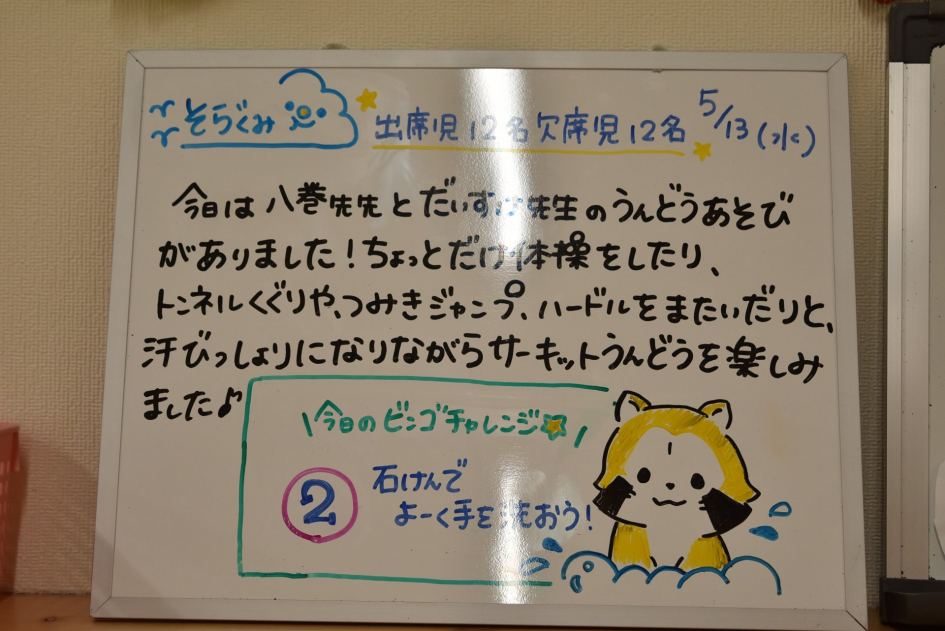 そらぐみ
出席児12名欠席児12名 5/13(水)
今日は八巻先先とだいすけ先生のうんどうあそび
がありました！ちょっとだけ体操をしたり、
トンネルくぐりや、つみきジャンプ、ハードルをまたいだりと、
汗びっしょりになりながらサーキットうんどうを楽しみ
ました♪
今日のビンゴチャレンジ☆
2
石けんで
よーく手を洗おう！